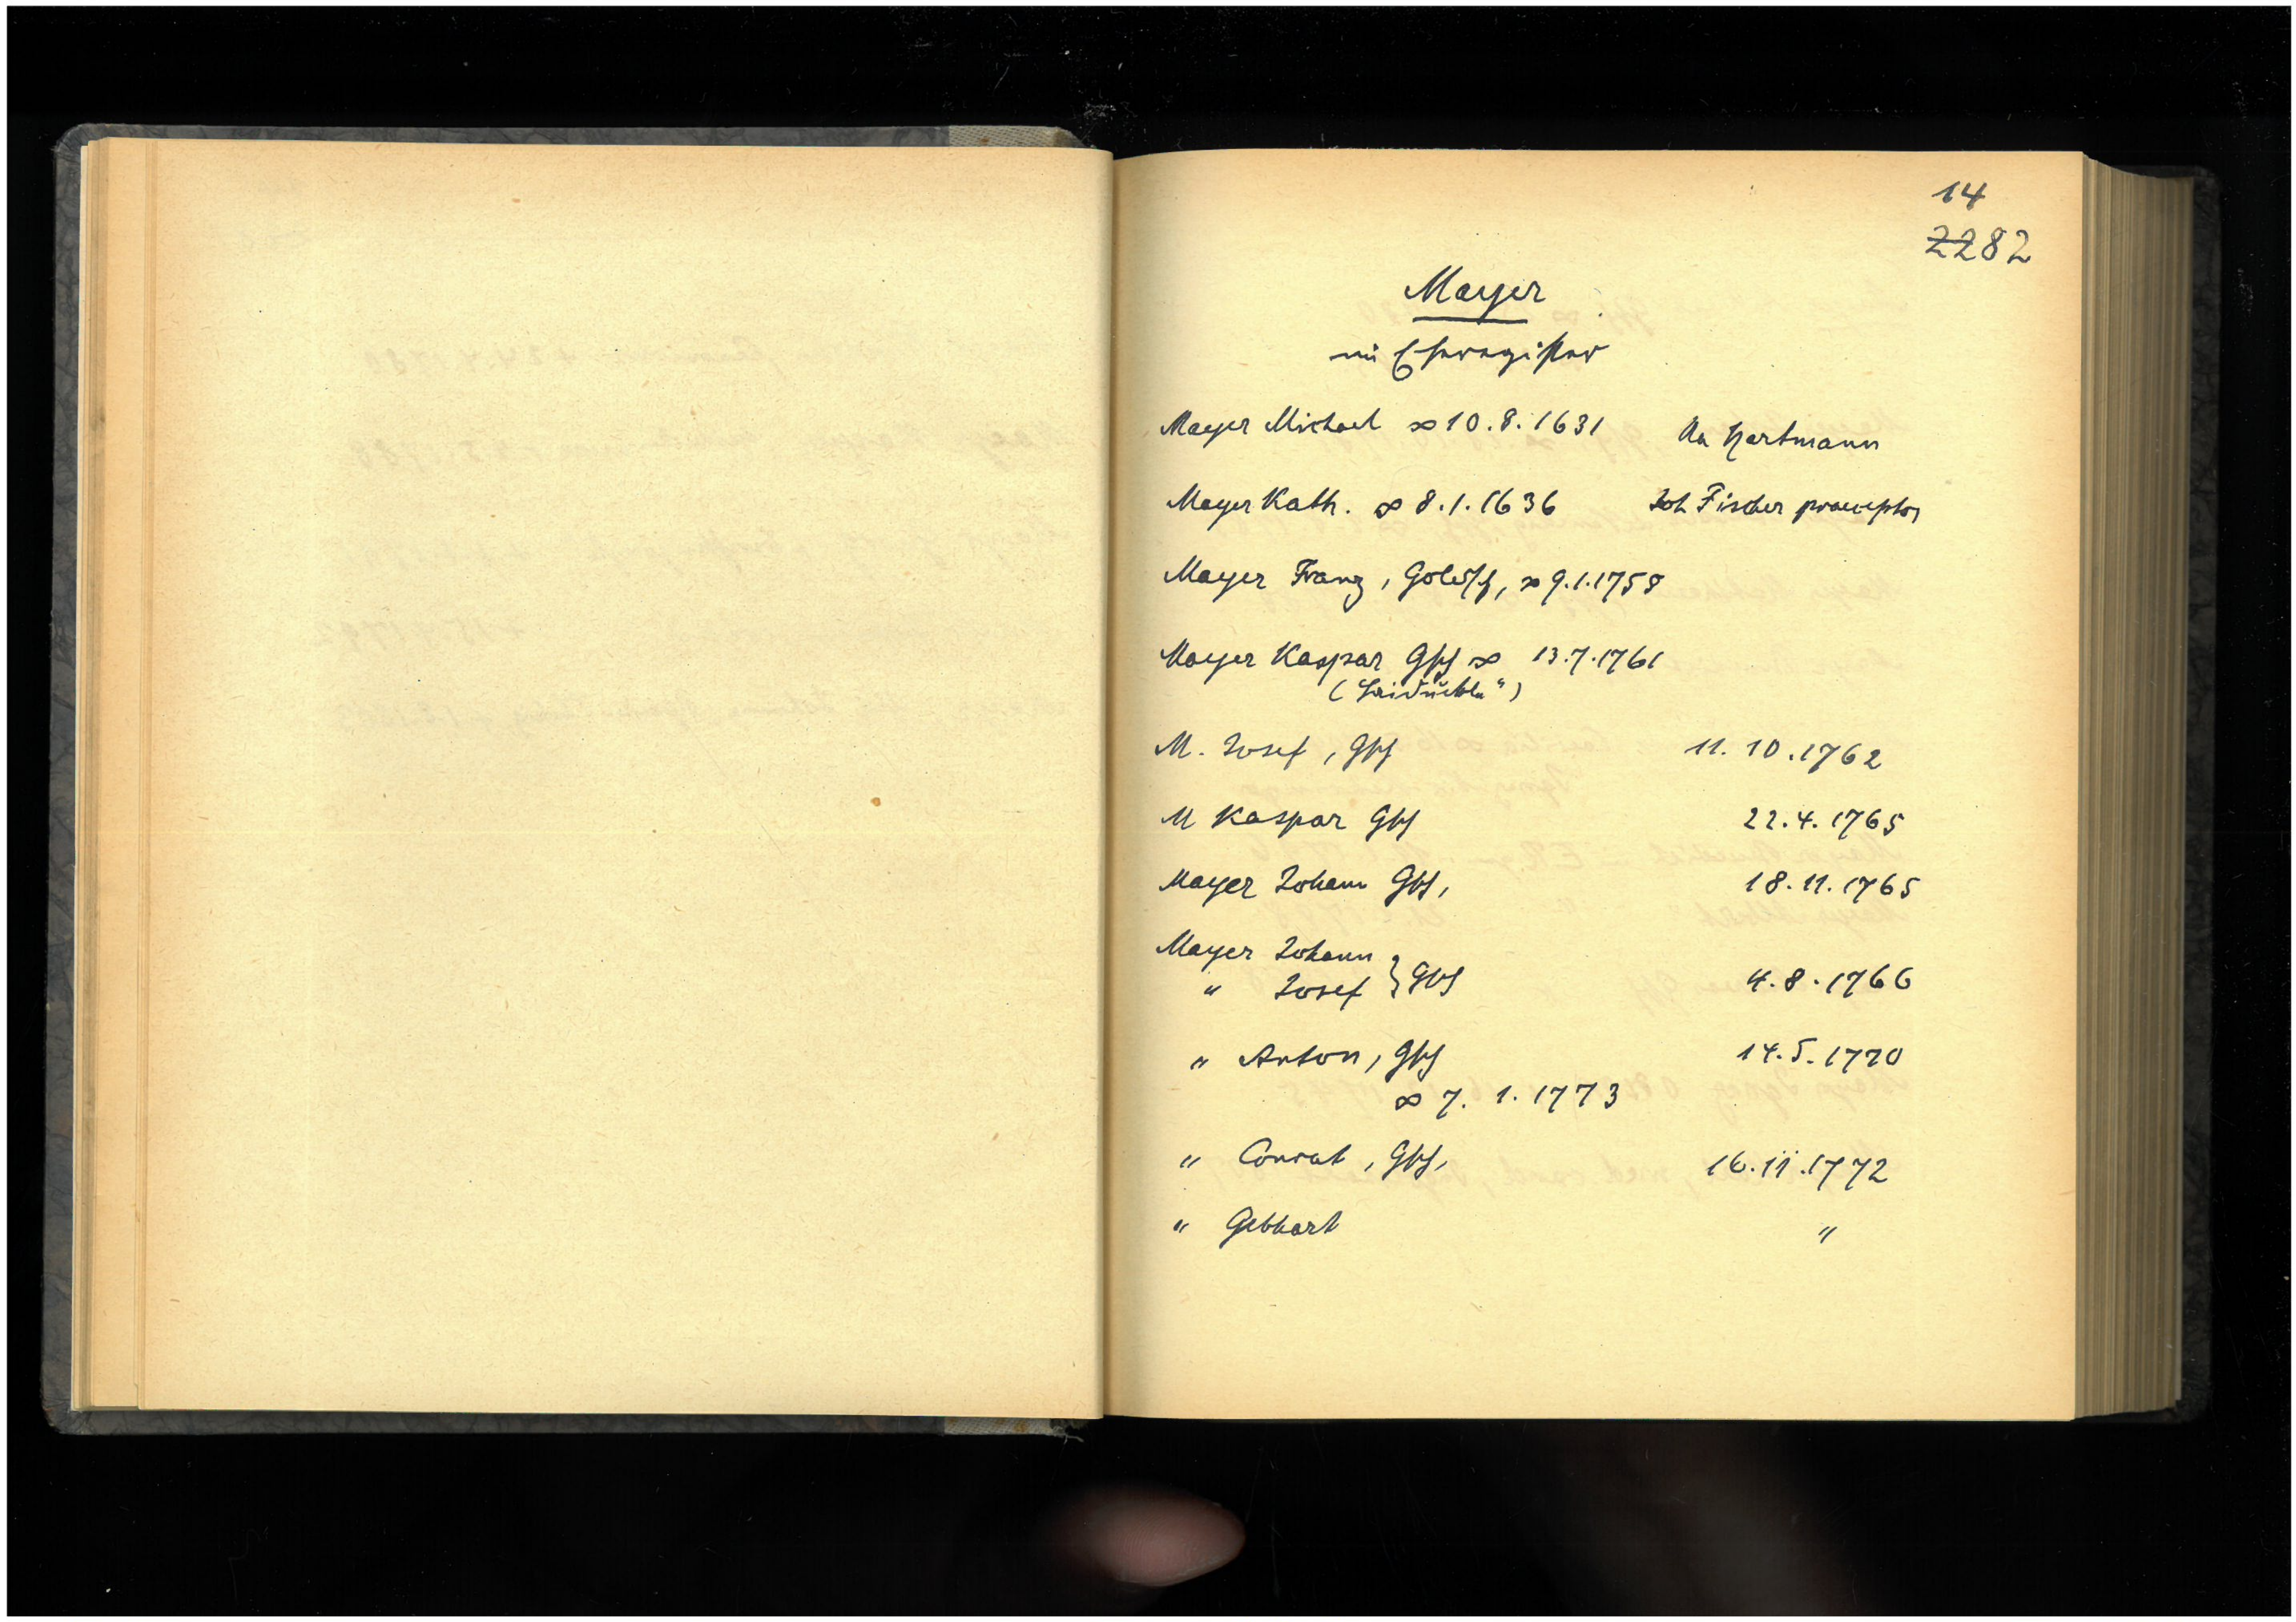 14
2282
Mayer
im Eheregister
Mayer Michael ∞ 10.8.1631 Ua Hartmann
Mayer Kath. ∞ 8.1.1636 Joh Fischer praeceptor
Mayer Franz, Goldsch, ∞ 9.1.1758
Mayer Kaspar Gsch ∞ 13.7.1761
M. Josef, Gsch 11.10.1762
M Kaspar Gsch 22.4.1765
Mayer Johann Gsch, 18.11.1765
Mayer Johann
" Josef } Gsch 4.8.1766
" Anton, Gsch 14.5.1770
∞ 7. 1. 1773
" Conrat, Gsch, 16.11.1772
" Gebhart "